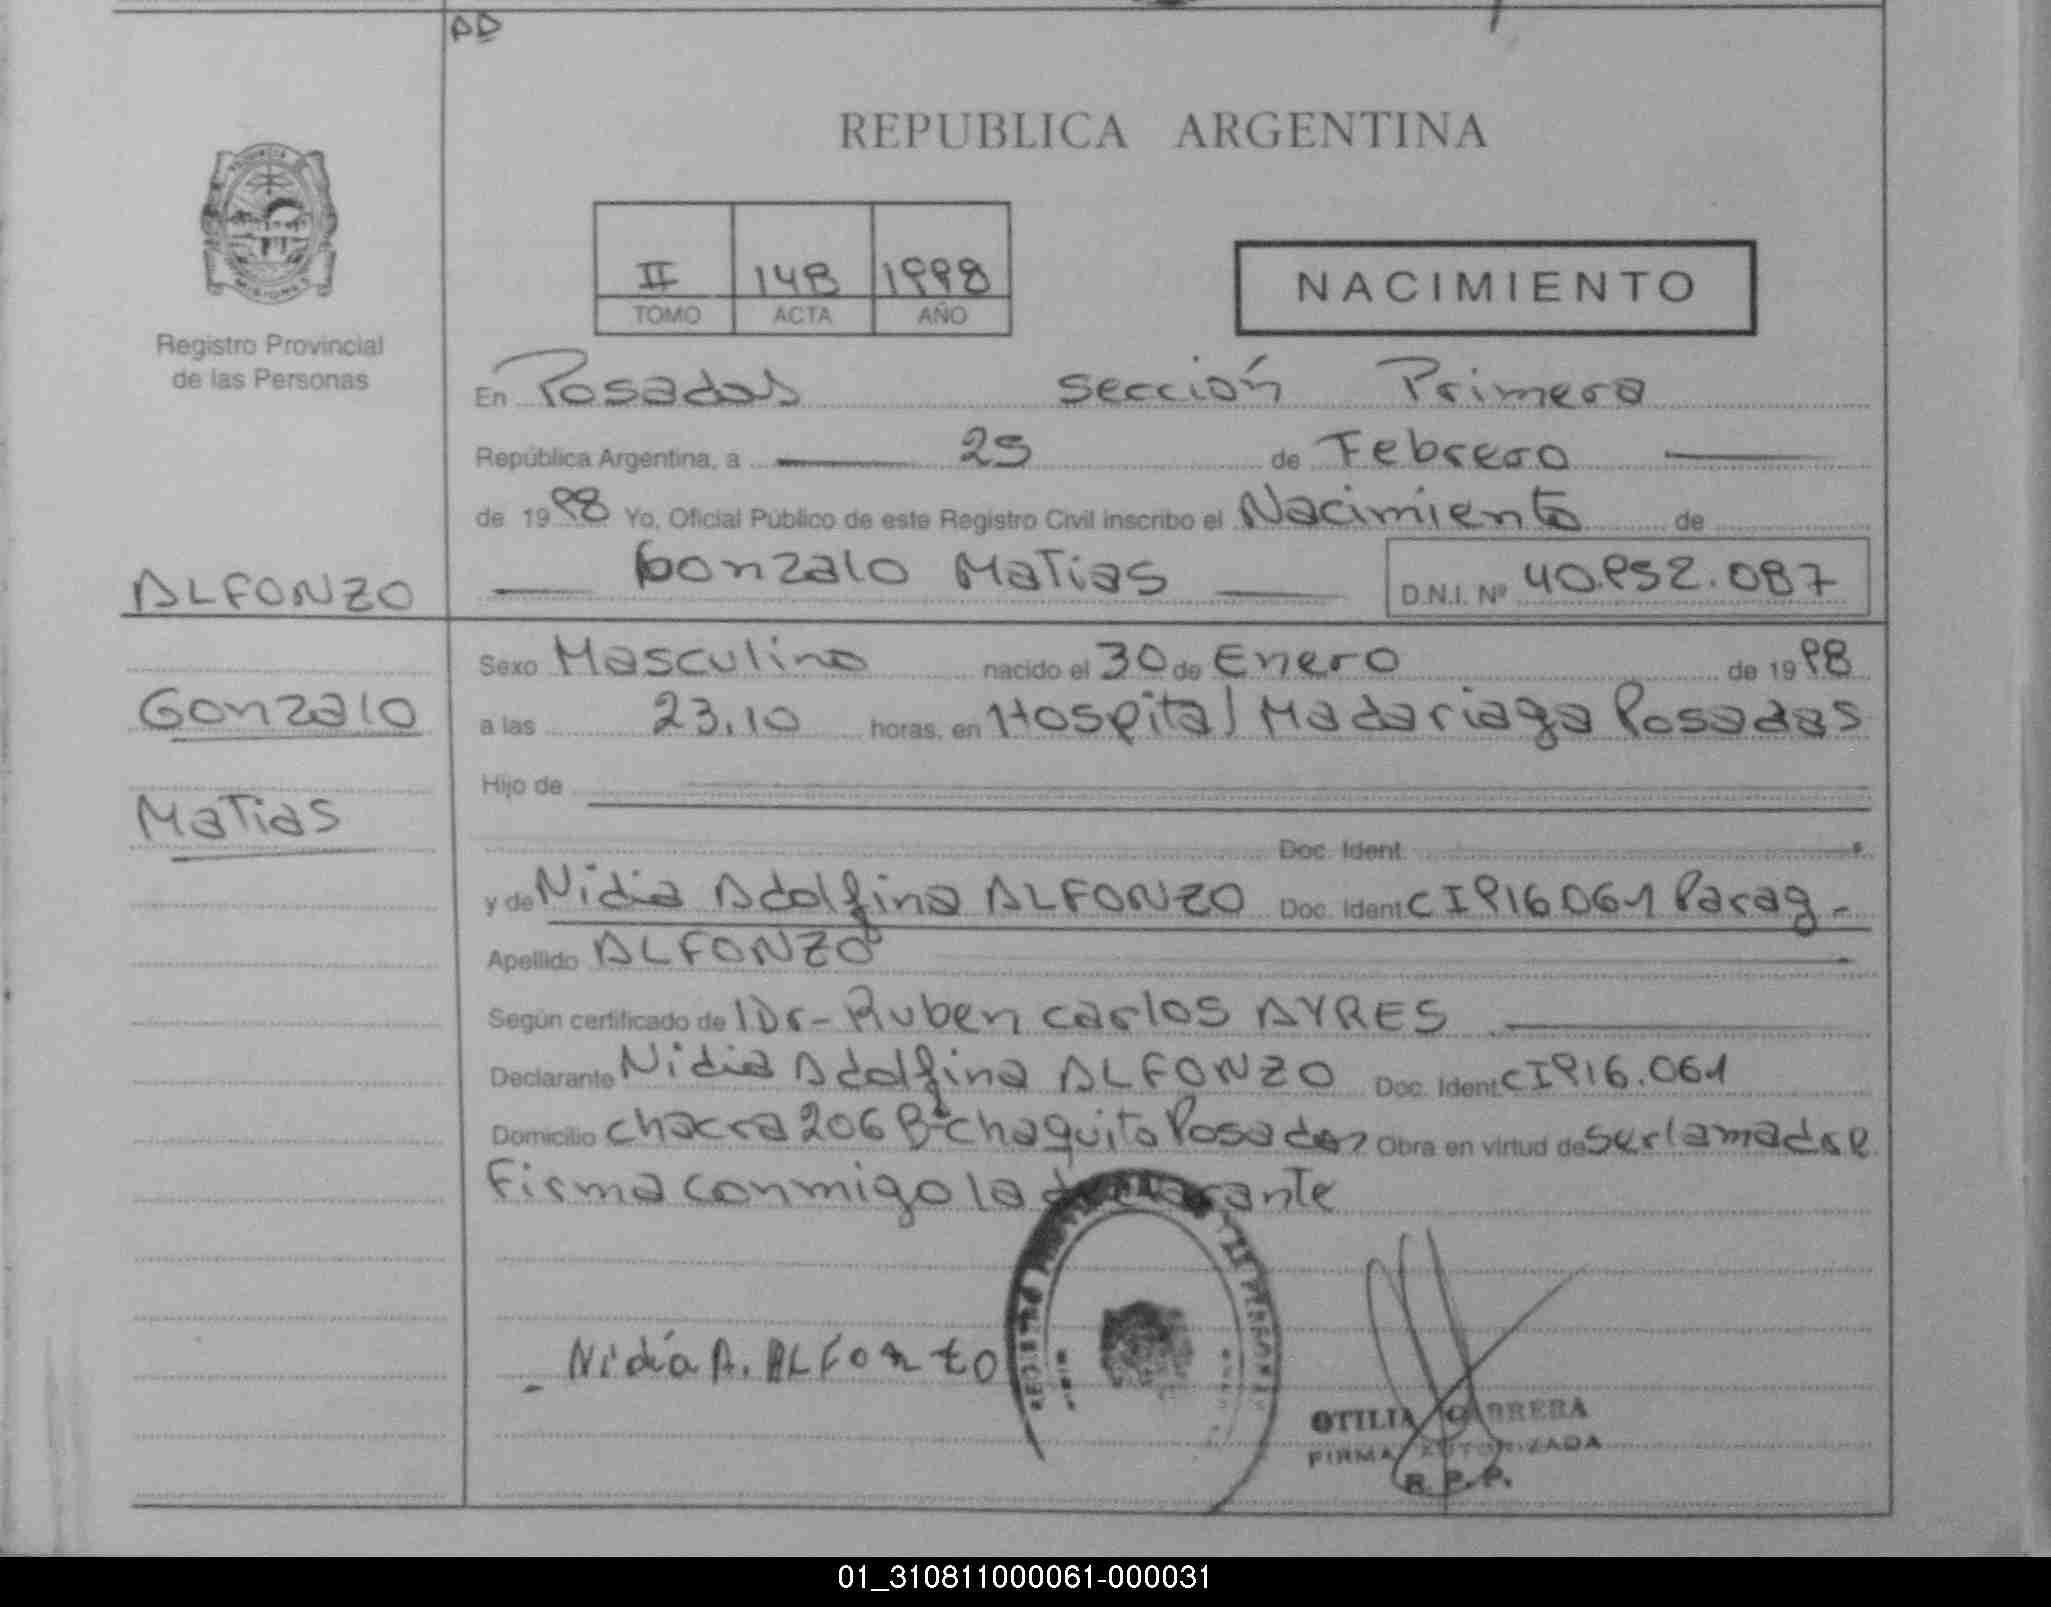 AD
REPUBLICA ARGENTINA
PROVINCIA
MISIONES
II 148 1998
TOMO ACTA AÑO
NACIMIENTO
Registro Provincial
de las Personas
En Posadas sección Primera
República Argentina, a 25 de Febrero
de 1998 Yo, Oficial Público de este Registro Civil inscribo el Nacimiento de
Gonzalo Matias D.N.I. Nº 40.952.087
ALFONZO
Gonzalo
Matias
Sexo Masculino nacido el 30 de Enero de 1998
a las 23,10 horas, en Hospital Madariaga Posadas
Hijo de
Doc. Ident.
y de Nidia Adolfina ALFONZO Doc. Ident CI916061 Parag-
Apellido ALFONZO
Según certificado de Dr- Ruben Carlos AYRES
Declarante Nidia Adolfina ALFONZO Doc. Ident CI916.061
Domicilio chacra 206 Bº chaquito Posadas Obra en virtud de ser la madre
Firma conmigo la declarante
Nidia A. ALFonzo
OTILIA CABRERA
FIRMA AUTORIZADA
R.P.P.
01_310811000061-000031